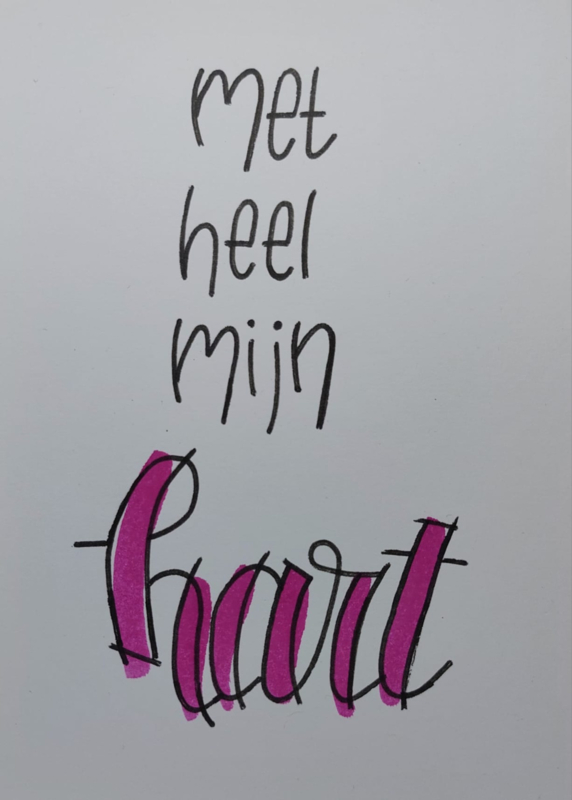 met
heel
mijn
hart